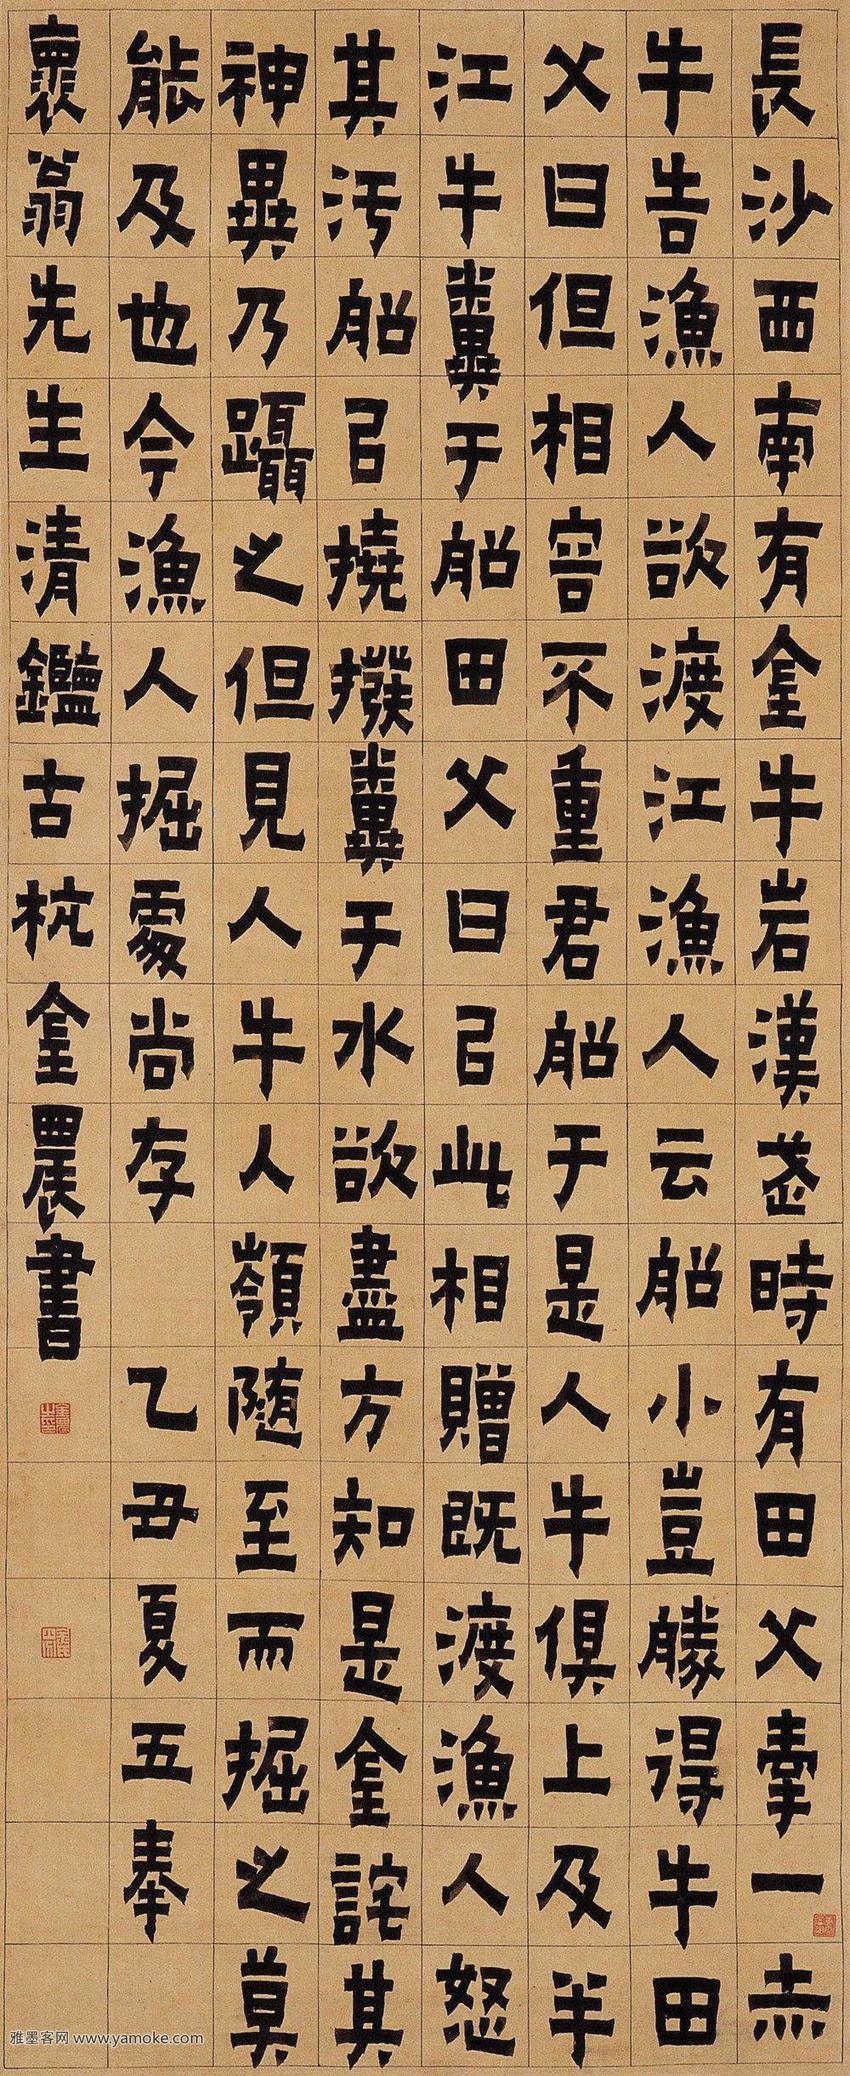 長沙西南有金牛岩漢武時有田父牽一赤
牛告漁人欲渡江漁人云船小豈勝得牛田
父曰但相容不重君船于是人牛俱上及半
江牛糞于船田父曰以此相贈既渡漁人怒
其污船以撓撥糞于水欲盡方知是金詫其
神異乃躡之但見人牛人嶺随至而掘之莫
能及也今漁人掘處尚存 乙丑夏五奉
褱翁先生清鑑古杭金農書
雅墨客网 www.yamoke.com